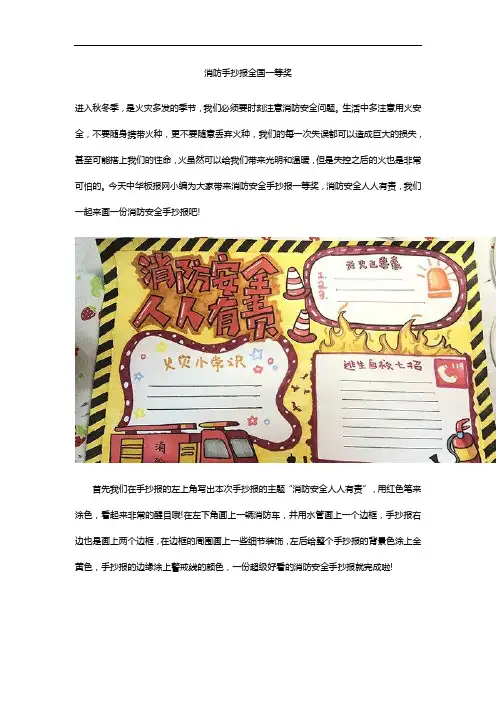 消防手抄报全国一等奖
进入秋冬季，是火灾多发的季节，我们必须要时刻注意消防安全问题。生活中多注意用火安
全，不要随身携带火种，更不要随意丢弃火种，我们的每一次失误都可以造成巨大的损失，
甚至可能搭上我们的性命，火虽然可以给我们带来光明和温暖，但是失控之后的火也是非常
可怕的。今天中华板报网小编为大家带来消防安全手抄报一等奖，消防安全人人有责，我们
一起来画一份消防安全手抄报吧!
消防安全
人人有责
着火三要素
1.
2.
3.
火灾小常识
逃生自救七招
119
消
首先我们在手抄报的左上角写出本次手抄报的主题“消防安全人人有责”，用红色笔来
涂色，看起来非常的醒目哦!在左下角画上一辆消防车，并用水管画上一个边框，手抄报右
边也是画上两个边框，在边框的周围画上一些细节装饰，左后给整个手抄报的背景色涂上全
黄色，手抄报的边缘涂上警戒线的颜色，一份超级好看的消防安全手抄报就完成啦!